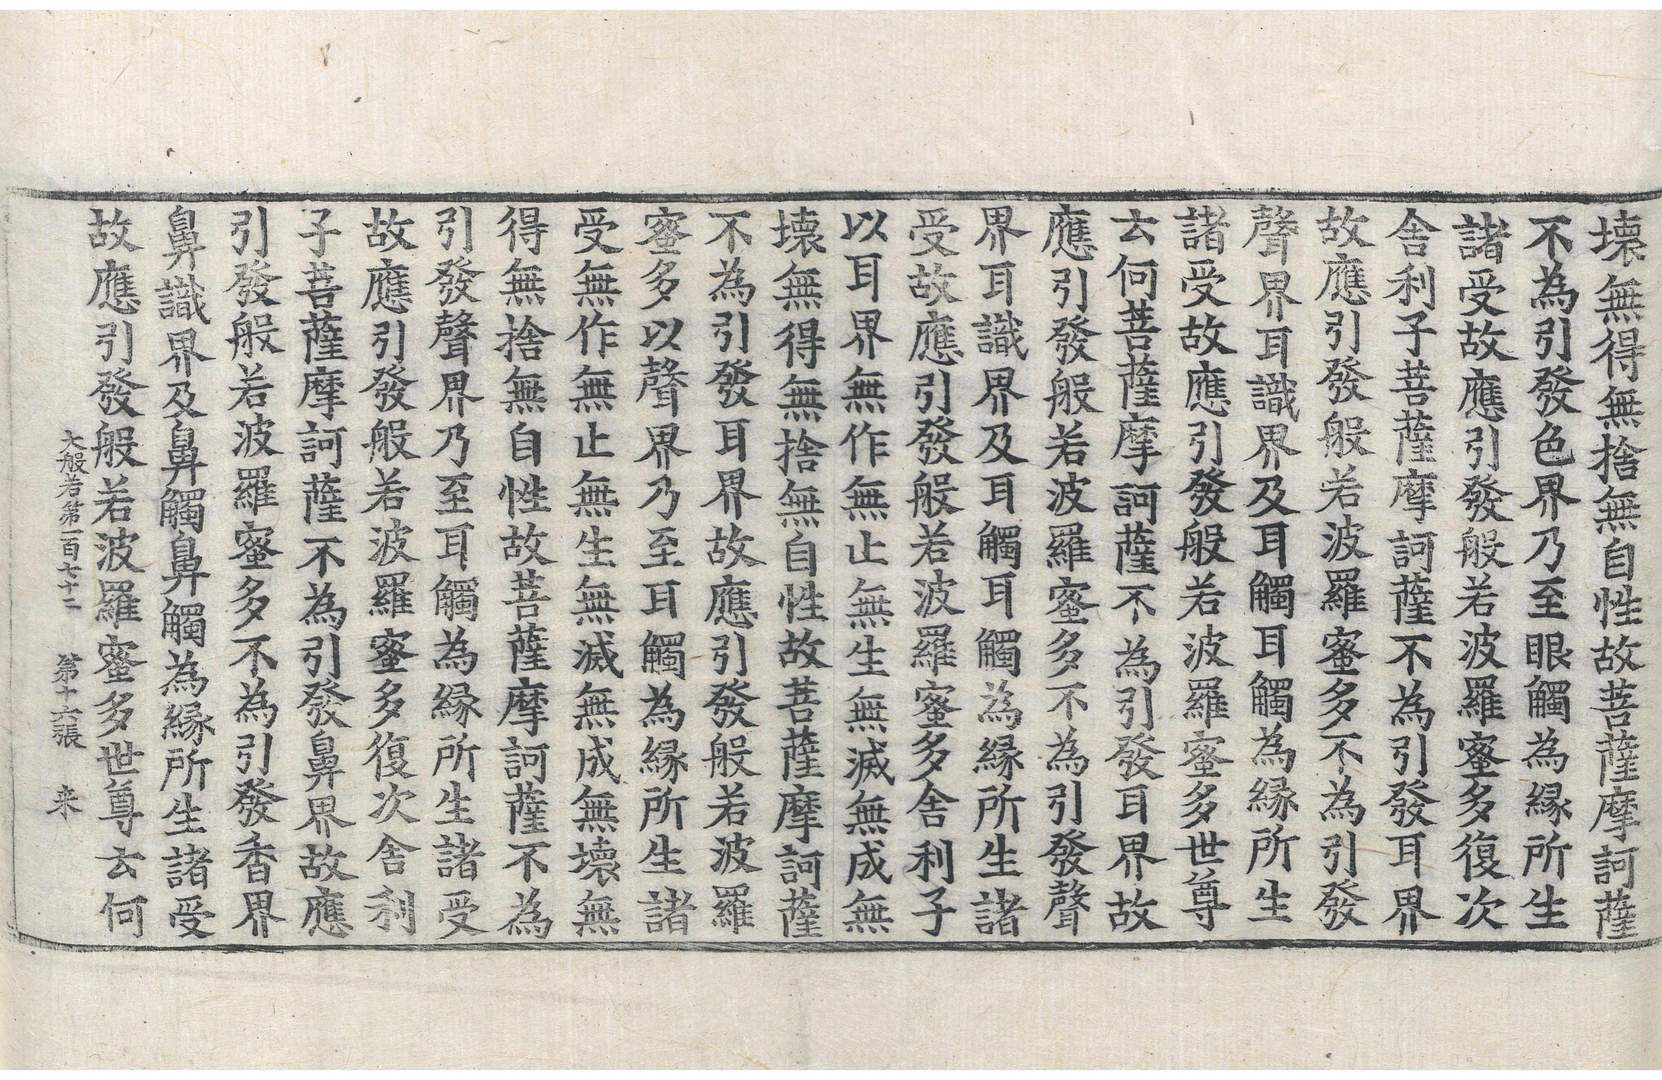 壞無得無捨無自性故菩薩摩訶薩
不為引發色界乃至眼觸為緣所生
諸受故應引發般若波羅蜜多復次
舍利子菩薩摩訶薩不為引發耳界
故應引發般若波羅蜜多不為引發
聲界耳識界及耳觸耳觸為緣所生
諸受故應引發般若波羅蜜多世尊
云何菩薩摩訶薩不為引發耳界故
應引發般若波羅蜜多不為引發聲
界耳識界及耳觸耳觸為緣所生諸
受故應引發般若波羅蜜多舍利子
以耳界無作無止無生無滅無成無
壞無得無捨無自性故菩薩摩訶薩
不為引發耳界故應引發般若波羅
蜜多以聲界乃至耳觸為緣所生諸
受無作無止無生無滅無成無壞無
得無捨無自性故菩薩摩訶薩不為
引發聲界乃至耳觸為緣所生諸受
故應引發般若波羅蜜多復次舍利
子菩薩摩訶薩不為引發鼻界故應
引發般若波羅蜜多不為引發香界
鼻識界及鼻觸鼻觸為緣所生諸受
故應引發般若波羅蜜多世尊云何
大般若第一百七十二 第十六張 来